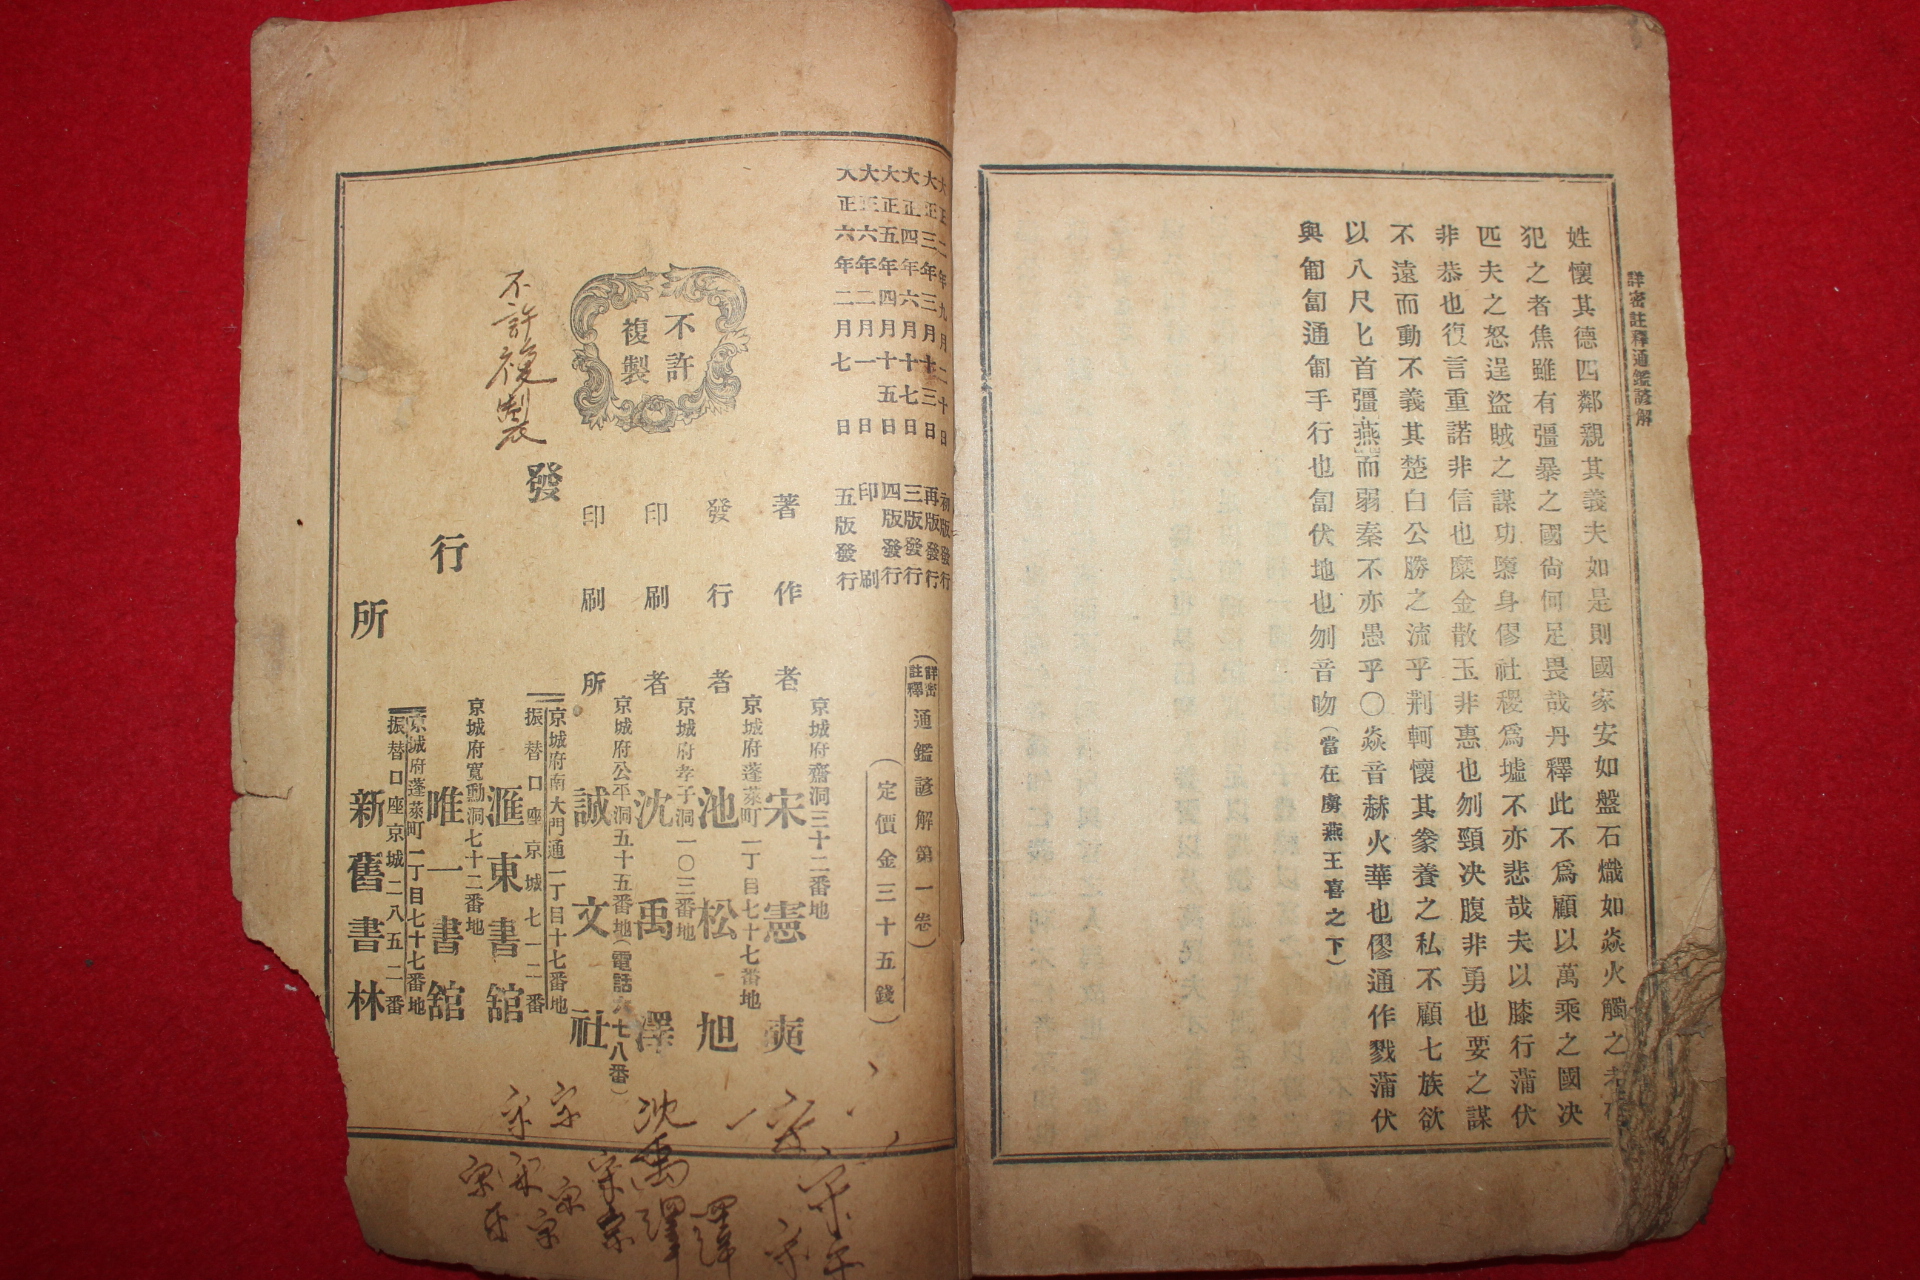 詳密註釋通鑑諺解
姓懷其德四鄰親其義夫如是則國家安如盤石熾如焱火觸之者
犯之者焦雖有彊暴之國尙何足畏哉丹釋此不爲顧以萬乘之國决
匹夫之怒逞盜賊之謀功隳身僇社稷爲墟不亦悲哉夫以膝行蒲伏
非恭也復言重諾非信也糜金散玉非惠也刎頸决腹非勇也要之謀
不遠而動不義其楚白公勝之流乎荆軻懷其豢養之私不顧七族欲
以八尺匕首彊燕而弱秦不亦愚乎〇焱音赫火華也僇通作戮蒲伏
與匍匐通匍手行也匐伏地也刎音吻(當在虜燕王喜之下)
大正二年九月二十日 初版發行
大正三年三月十三日 再版發行
大正四年六月十七日 三版發行
大正五年四月十五日 四版發行
大正六年二月一日 印刷
大正六年二月七日 五版發行
(詳密註釋通鑑諺解第一卷)
(定價金三十五錢)
不許
複製
不許複製
京城府齋洞三十二番地
著作者 宋憲奭
京城府蓬萊町一丁目七十七番地
發行者 池松旭
京城府孝子洞一〇三番地
印刷者 沈禹澤
京城府公平洞五十五番地(電話六七八番)
印刷所 誠文社
發行所
京城府南大門通一丁目十七番地
振替口座京城七一二番
滙東書舘
京城府寬勳洞七十二番地
唯一書舘
京城府蓬萊町一丁目七十七番地
振替口座京城二八五二番
新舊書林
沈禹澤
澤
宋
宋
宋
宋